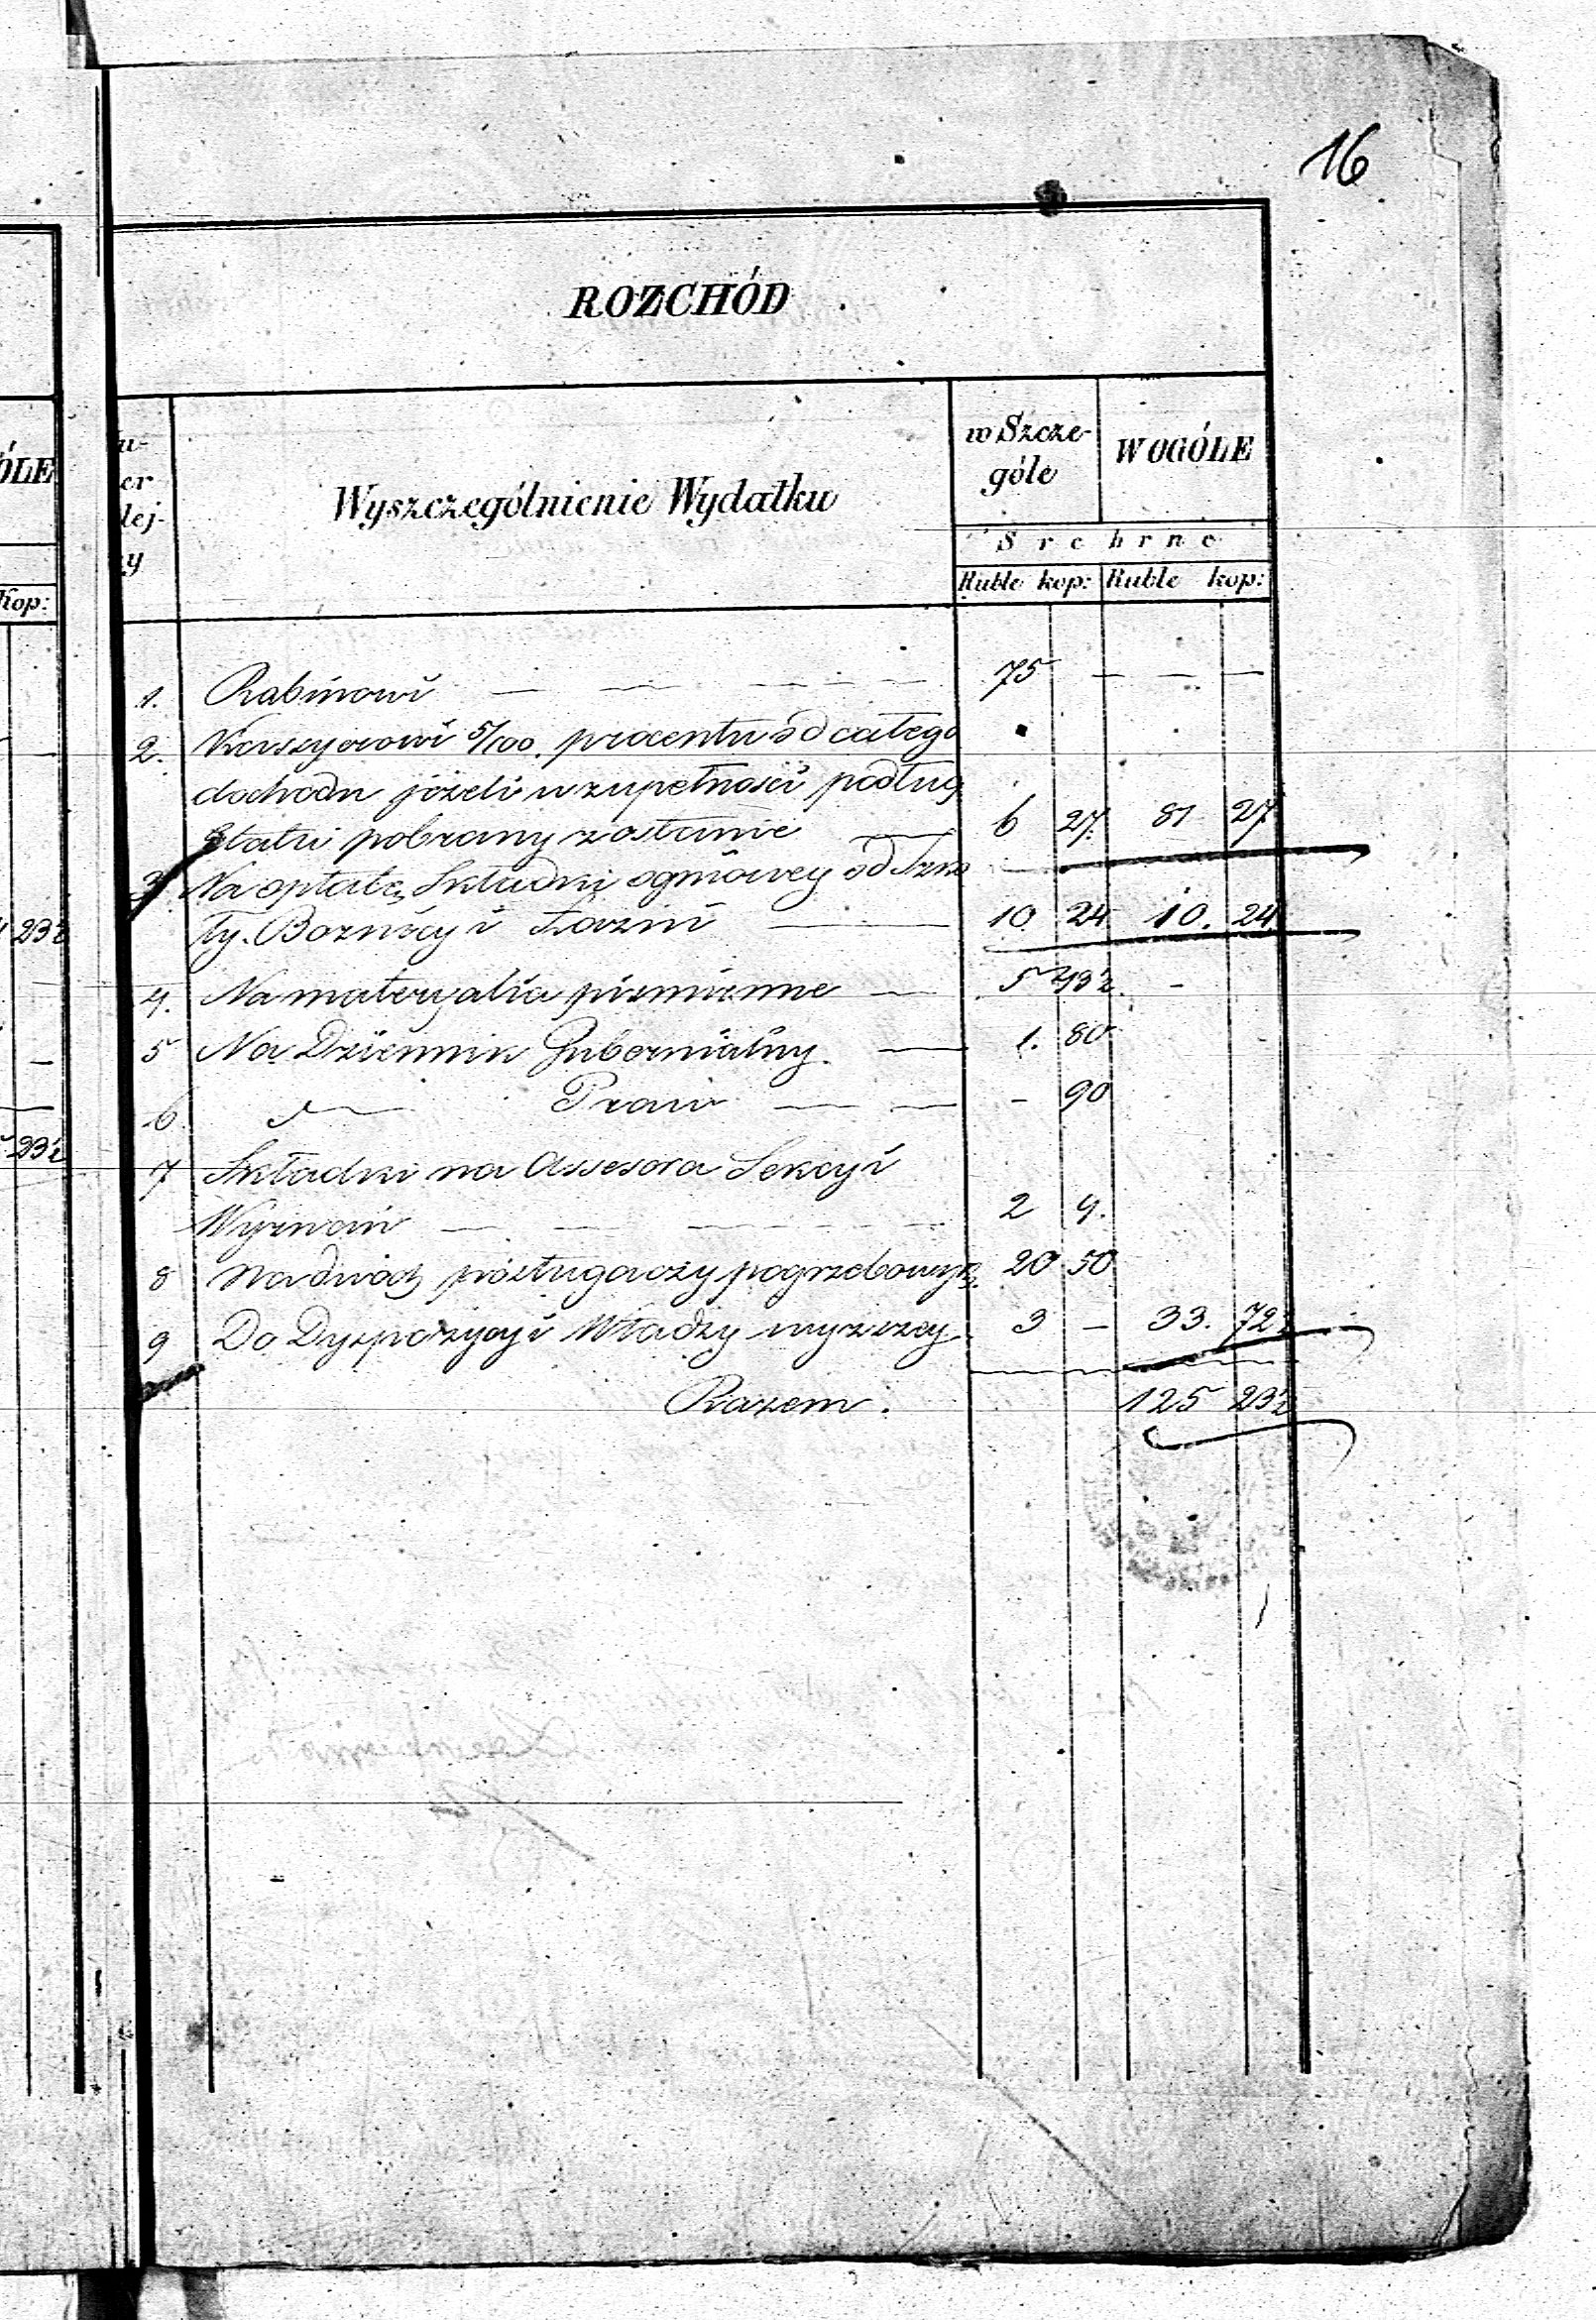 16
ROZCHÓD
ÓLE
Kop:
u-
er
lej-
y
Wyszczególnienie Wydatku
w Szcze-
góle
W OGÓLE
Srebrne
Ruble kop: Ruble kop:
1. Rabinowi — — — — 75 — — —
2. Kassyerowi 5/100. procentu od całego
dochodu jeżeli w zupełności podług
Etatu pobrany zostanie — 6 27. 81 27
3. Na opłatę Składki ogniowey od Szko
ły. Boznicy i Łazni — 10 24 10. 24
23½
4. Na materyalia piśmienne — 5 43½ -
5 Na Dziennik Gubernialny. — 1. 80
6 Praw — — - 90
23½
7 Składki na Assesora Sekcyi
Wyznań — — — 2 9.
8 Na dwóch posługaczy pogrzebowych 20 50
9 Do Dyspozycyi Władzy wyższey 3 — 33. 72½
Razem: 125 23½